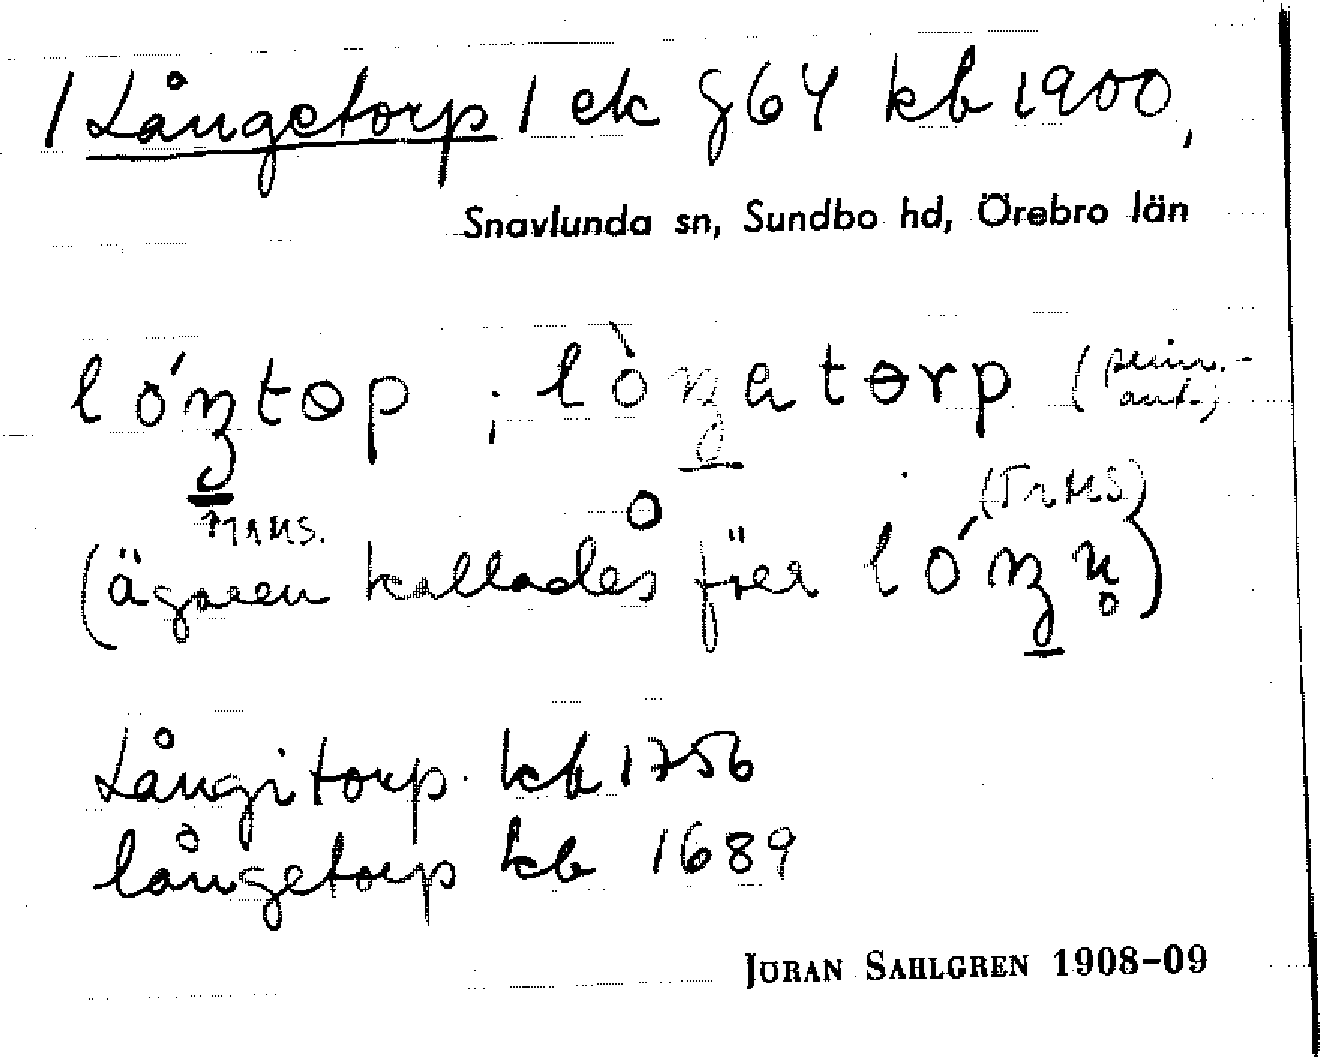 / Långetorp / ek g64 kb 1900,
Snavlunda sn, Sundbo hd, Örebro län
lóŋtɵp ; lòŋatɵrp
(ägaren kallades förr lóŋn̥)
Långitorp kb 1756
långetorp kb 1689
JÖRAN SAHLGREN 1908–09